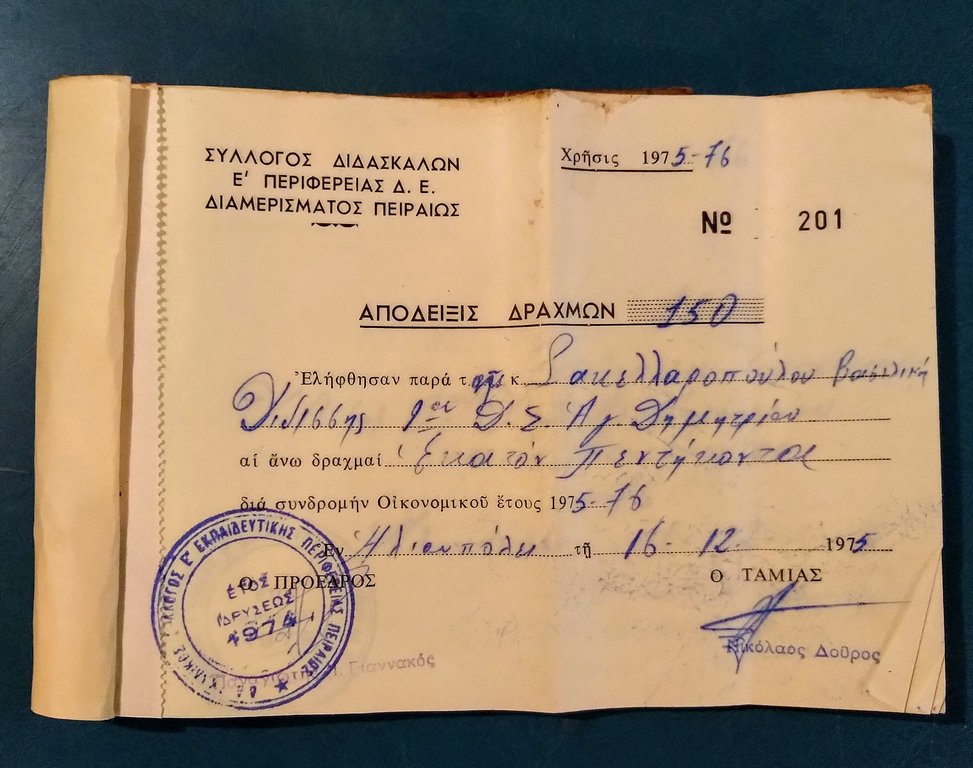 ΣΥΛΛΟΓΟΣ ΔΙΔΑΣΚΑΛΩΝ
Ε' ΠΕΡΙΦΕΡΕΙΑΣ Δ. Ε.
ΔΙΑΜΕΡΙΣΜΑΤΟΣ ΠΕΙΡΑΙΩΣ
Χρῆσις 1975-76
Νο 201
ΑΠΟΔΕΙΞΙΣ ΔΡΑΧΜΩΝ 150
Ἐλήφθησαν παρά τ.ῆς κ. Σακελλαροπούλου Βασιλική
Δ. Σ. Ἁγ. Δημητρίου
αἱ ἄνω δραχμαί Ἑκατόν Πεντήκοντα
διά συνδρομήν Οἰκονομικοῦ ἔτους 1975-76
Ἐν Ἡλιουπόλει τῇ 16-12 1975
Ο ΠΡΟΕΔΡΟΣ
Ο ΤΑΜΙΑΣ
Νικόλαος Δοθρος
Ι. Γιαννακός
ΣΥΛΛΟΓΟΣ Ε' ΕΚΠΑΙΔΕΥΤΙΚΗΣ ΠΕΡΙΦΕΡΕΙΑΣ ΠΕΙΡΑΙΩΣ
ΕΤΟΣ
ΙΔΡΥΣΕΩΣ
1974